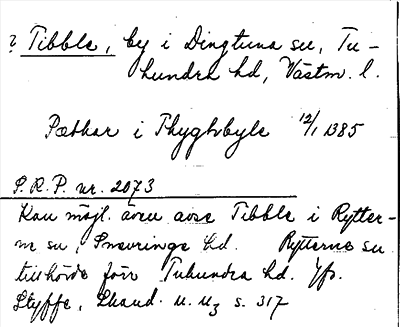 ? Tibble, by i Dingtuna sn, Tu-
hundra hd, Västm. l.
Pæthar i Thyghbyle 12/1 1385
P.R.P. nr. 2073
Kan möjl. även avse Tibble i Rytter-
ne sn, Snevringe hd. Rytterne sn
tillhörde förr Tuhundra hd. Jfr.
Styffe, Skand. u. u3 s. 317